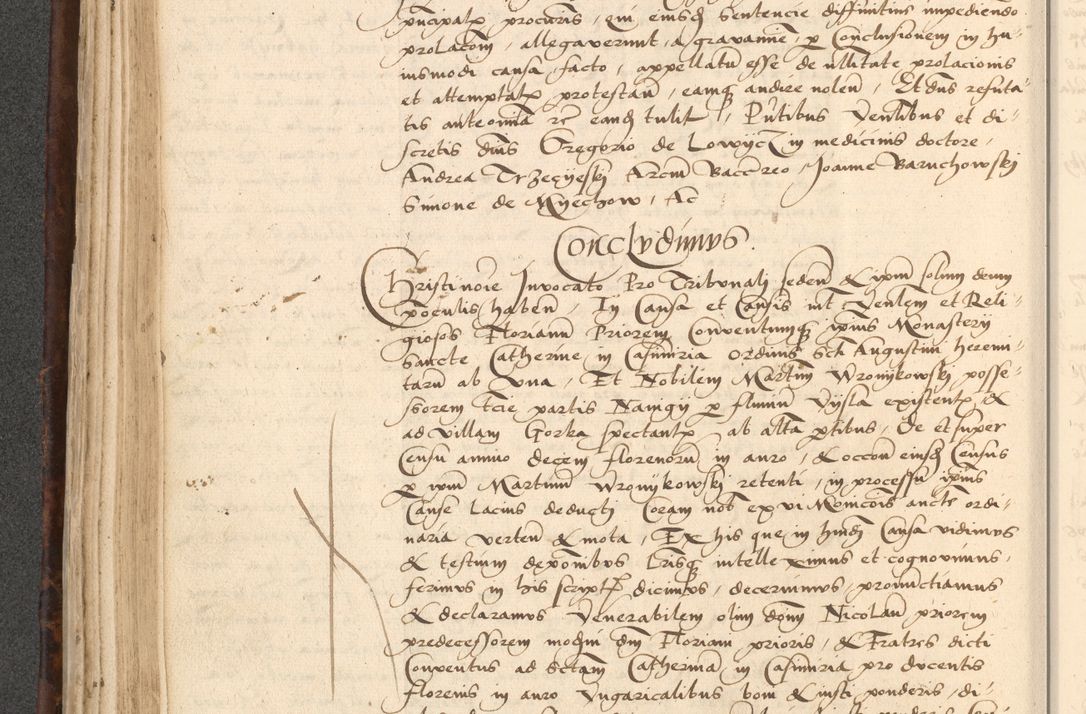 prolacom, allegaverunt, a gravamine, p Conclusionem in hu-
iusmodi causa facto, appellatum esse de nllitate prolacionis
et attemptatp protestan, eamq andire nolen, Et dns refuta-
tis ante omnia rc eand tulit, Pntibus Venlibus et di-
scretis dnis Gregorio de Lowycz in medicinis doctore,
Andrea Trzecyeski Arcm Baccreo, Joanne Baruchowski
Simone de Myechow, Ac
Conclvdimvs.
Christi noie Invocato Pro Tribvnali seden & ipm solum deum
poculis haben, In Causa et Causis int Venlem et Reli-
giosos Florianu Priorem Conventumq ipius Monastery
Sancte Catherine in Casimiria Ordinis Scti Augustini heremi-
taru ab vna, Et Nobilem Martinu Wronykowski posse-
ssorem tcie partis Namgy p flumen Vysla existentp, &
ad villam Gorka spectantp ab alta ptibus, De et super
Censu annuo decem florenoru in auro, & occone eiusd Census
p ipm Martinu Wronykowski retenti, in processu ipius
Cause lacius deducti Coram nob ex vi Momcois ancte ordi-
naria verten & mota, Ex his que in hmdi Causa vidimus
& testium deponibus Lrisq intelleximus et cognovimus,
ferimus in his scriptp dicimus, decernimus, pronunctiamus
& declaramus Venerabilem olim dom Nicolau priorem
predecessorem modni dni Floriani prioris, & Fratres dicti
Conventus ad Sctam Catherina in Casimiria pro ducentis
florenis in auro Vngaricalibus boni & iusti ponderis, di-